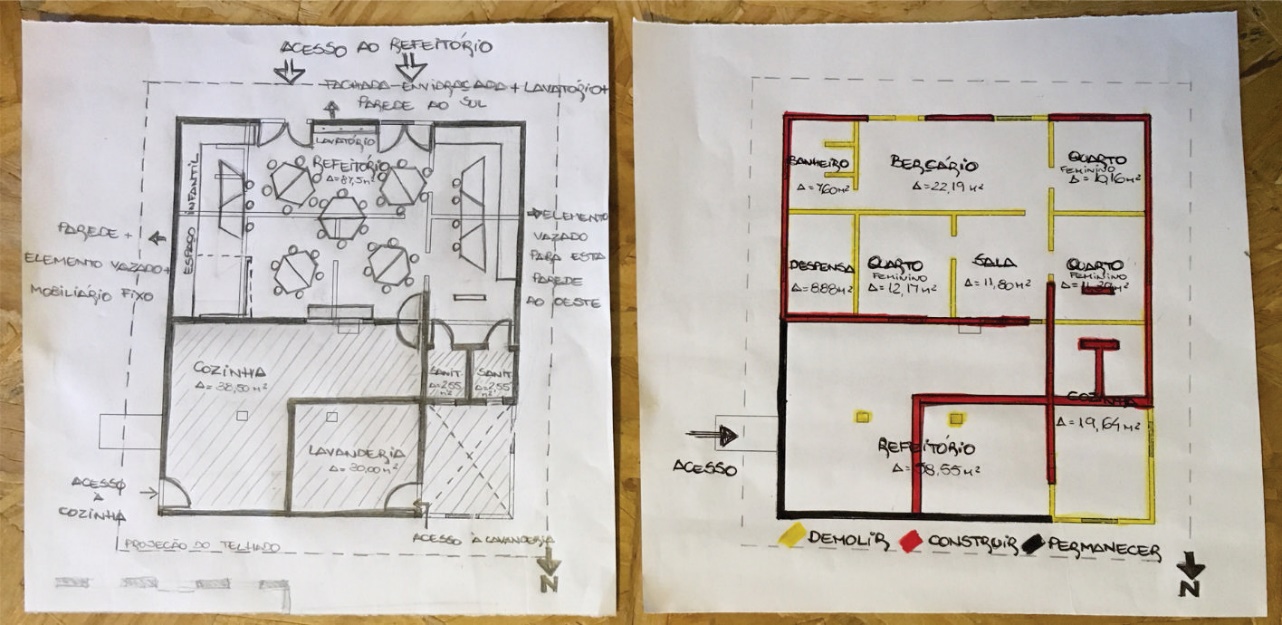 ACESSO AO REFEITÓRIO
FACHADA ENVIDRAÇADA + LAVATÓRIO +
PAREDE AO SUL
LAVATÓRIO
REFEITÓRIO
Δ= 87,5 m²
ESPAÇO INFANTIL
PAREDE +
ELEMENTO VAZADO +
MOBILIÁRIO FIXO
ELEMENTO
VAZADO
PARA ESTA
PAREDE
AO OESTE
COZINHA
Δ= 38,50 m²
SANIT.
Δ=2,55
m²
SANIT.
Δ=2,55
m²
LAVANDERIA
Δ= 20,00 m²
ACESSO
À
COZINHA
ACESSO À LAVANDERIA
PROJEÇÃO DO TELHADO
N
BANHEIRO
Δ= 7,60 m²
BERÇÁRIO
Δ= 22,19 m²
QUARTO
FEMININO
Δ= 10,16 m²
DESPENSA
Δ= 8,88 m²
QUARTO
FEMININO
Δ= 12,17 m²
SALA
Δ= 11,80 m²
QUARTO
FEMININO
COZINHA
Δ= 19,64 m²
REFEITÓRIO
Δ= 58,55 m²
ACESSO
DEMOLIR CONSTRUIR PERMANECER
N